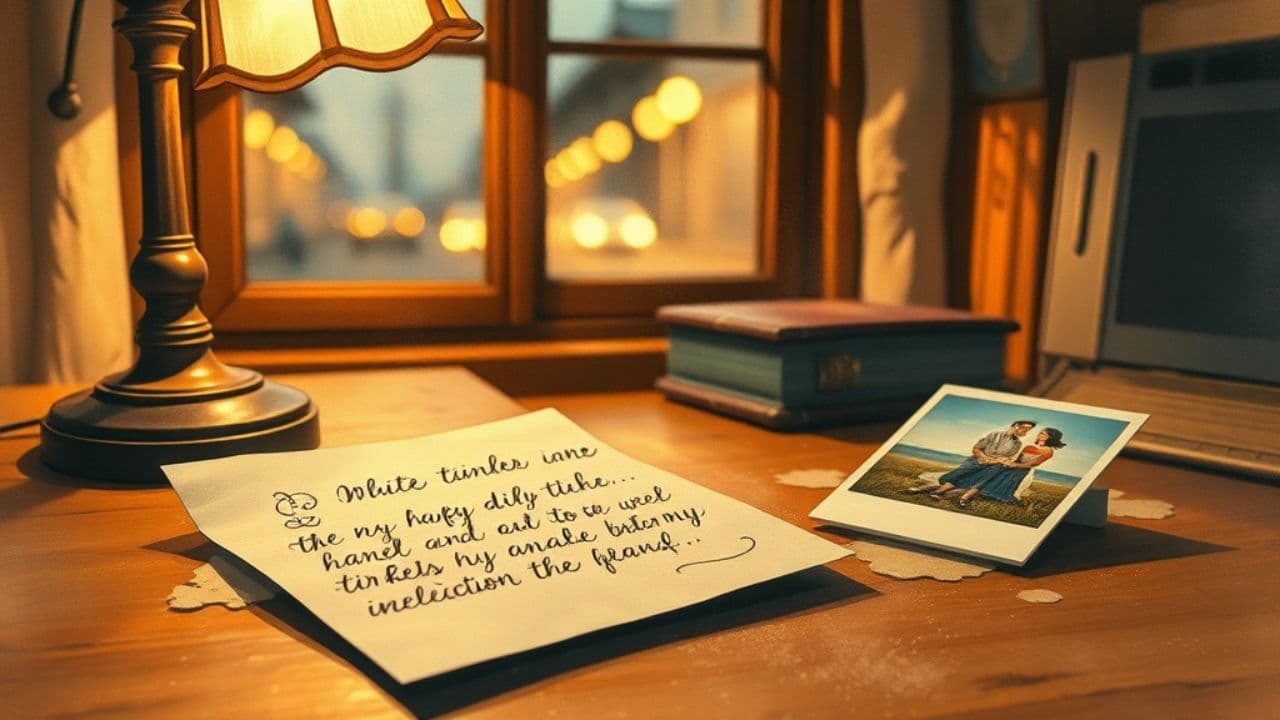 White tinkler ine
the ny hafy dily tithe...
hanel and out to ce weel
tinkels hy anale brtor my
ineliction the feand...